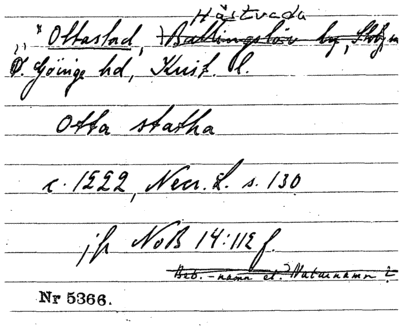 Hästveda
" Ottastad, +Ballingslöv by, Stoby sn
Ö. Göinge hd, Krist. l.
Otta statha
c. 1222, Necr. L. s. 130
jfr NoB 14:112 f.
Beb.-namn el. Naturnamn?
Nr 5366.